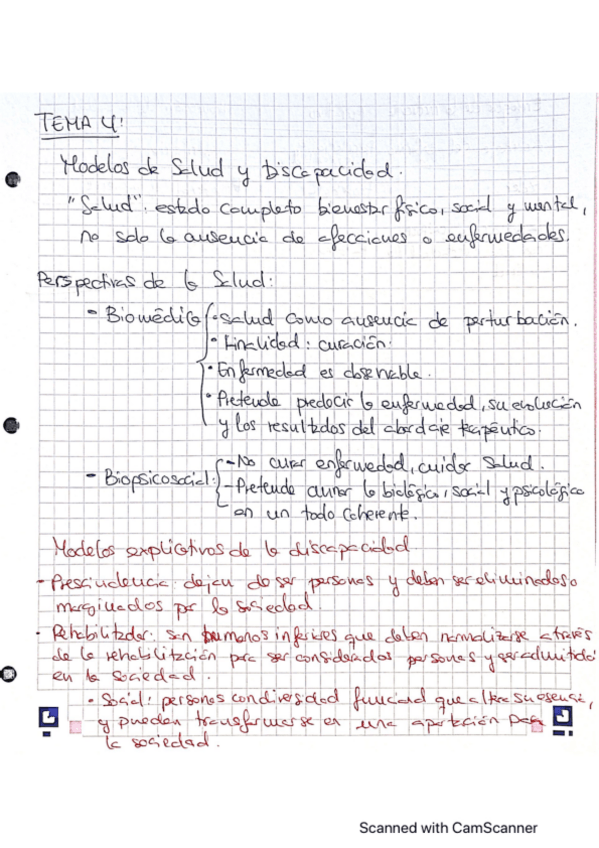 TEMA 4:
Modelos de Salud y Discapacidad.
"Salud": estado completo bienestar físico, social y mental,
no solo la ausencia de afecciones o enfermedades.
Perspectivas de la Salud:
- Biomédico - Salud como ausencia de perturbación.
• Finalidad: curación.
• Enfermedad es observable.
• Pretende predecir la enfermedad, su evolución
y los resultados del abordaje terapéutico.
- Biopsicosocial: - No curar enfermedad, cuidar Salud.
- Pretende aunar lo biológico, social y psicológico
en un todo coherente.
Modelos explicativos de la discapacidad
- Prescindencia: dejan de ser personas y deben ser eliminados o
marginados por la sociedad.
• Rehabilitador: son humanos inferiores que deben normalizarse através
de la rehabilitación para ser considerados personas y ser admitido
en la sociedad.
• Social: personas con diversidad funcional que altera su esencia,
y pueden transformarse en una aportación para
la sociedad.
Scanned with CamScanner